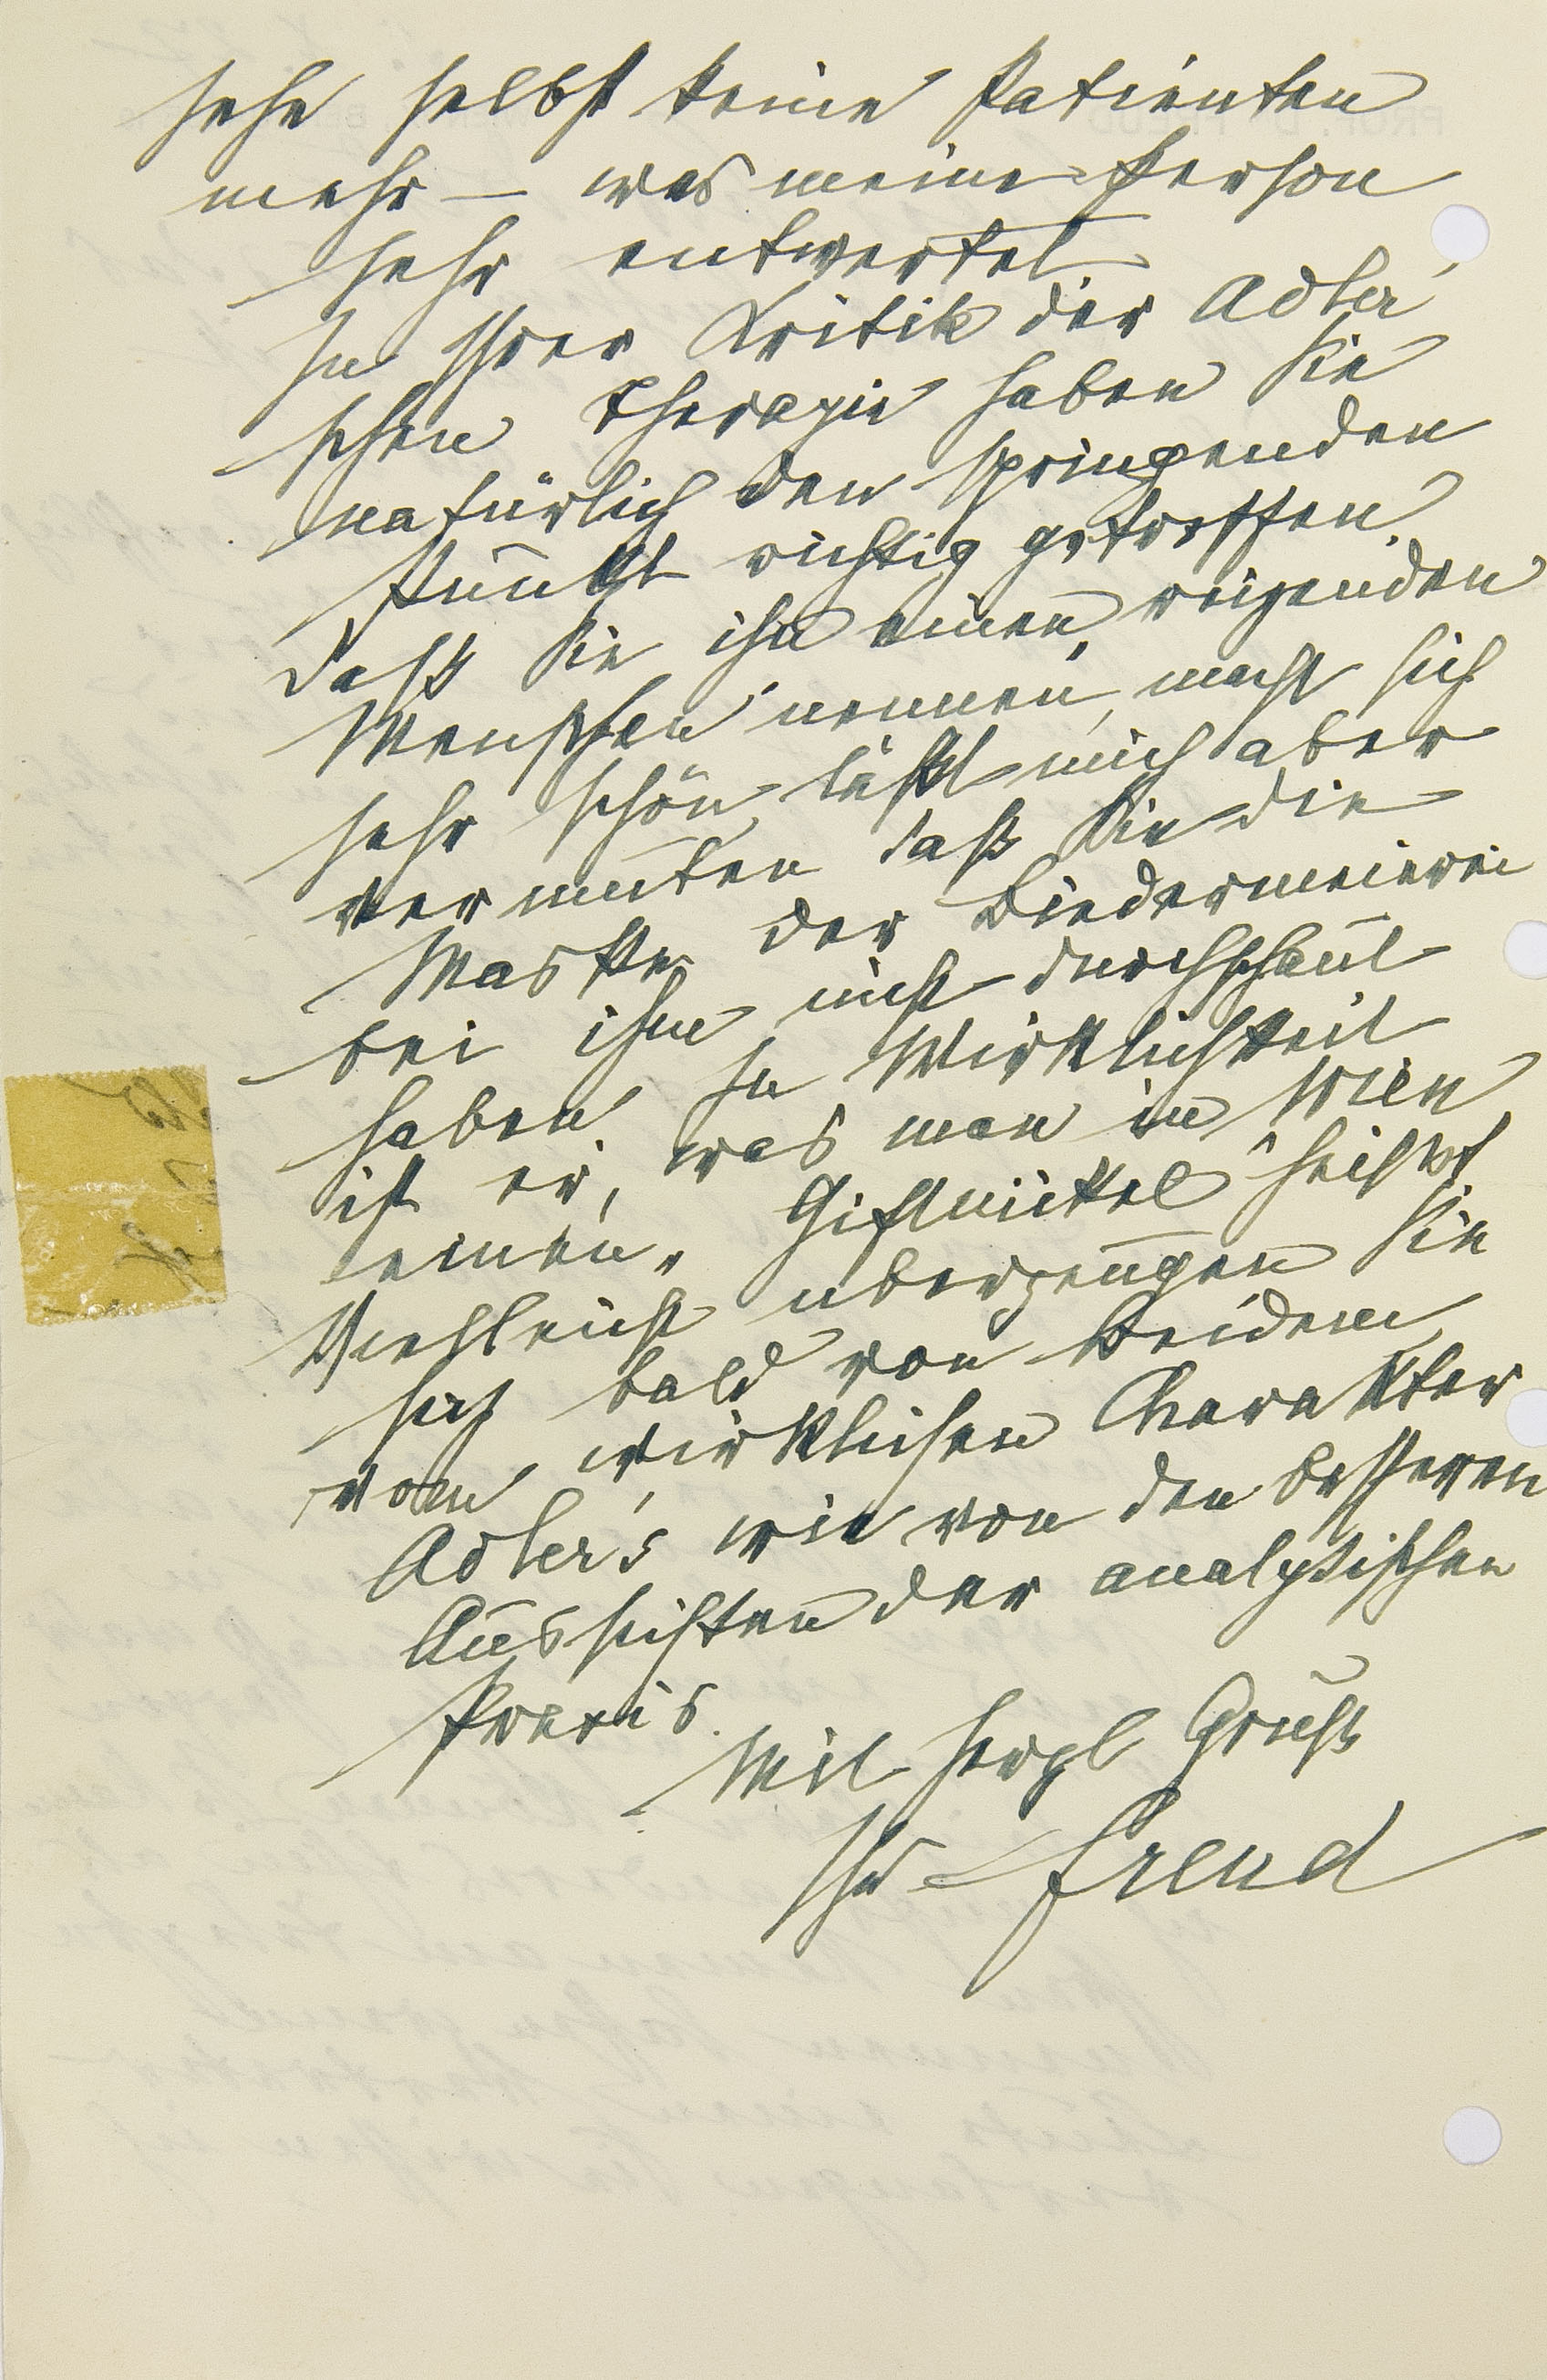 sehe selbst keine Patienten
mehr – was meine Person
sehr entwertet.
In Ihrer Kritik der Adler'
schen Therapie haben Sie
natürlich den springenden
Punkt richtig getroffen.
Daß Sie ihn einen „reizenden
Menschen“ nennen, macht sich
sehr schön, läßt mich aber
vermuten daß Sie die
Maske der Biedermeierei
bei ihm nicht durchschaut
haben. In Wirklichkeit
ist er, was man in Wien
einen „Giftnickel“ heißt.
Vielleicht überzeugen Sie
sich bald von Beidem
vom wirklichen Charakter
Adler's wie von den besseren
Aussichten der analytischen
Praxis.
Mit herzl Gruß
Ihr Freud